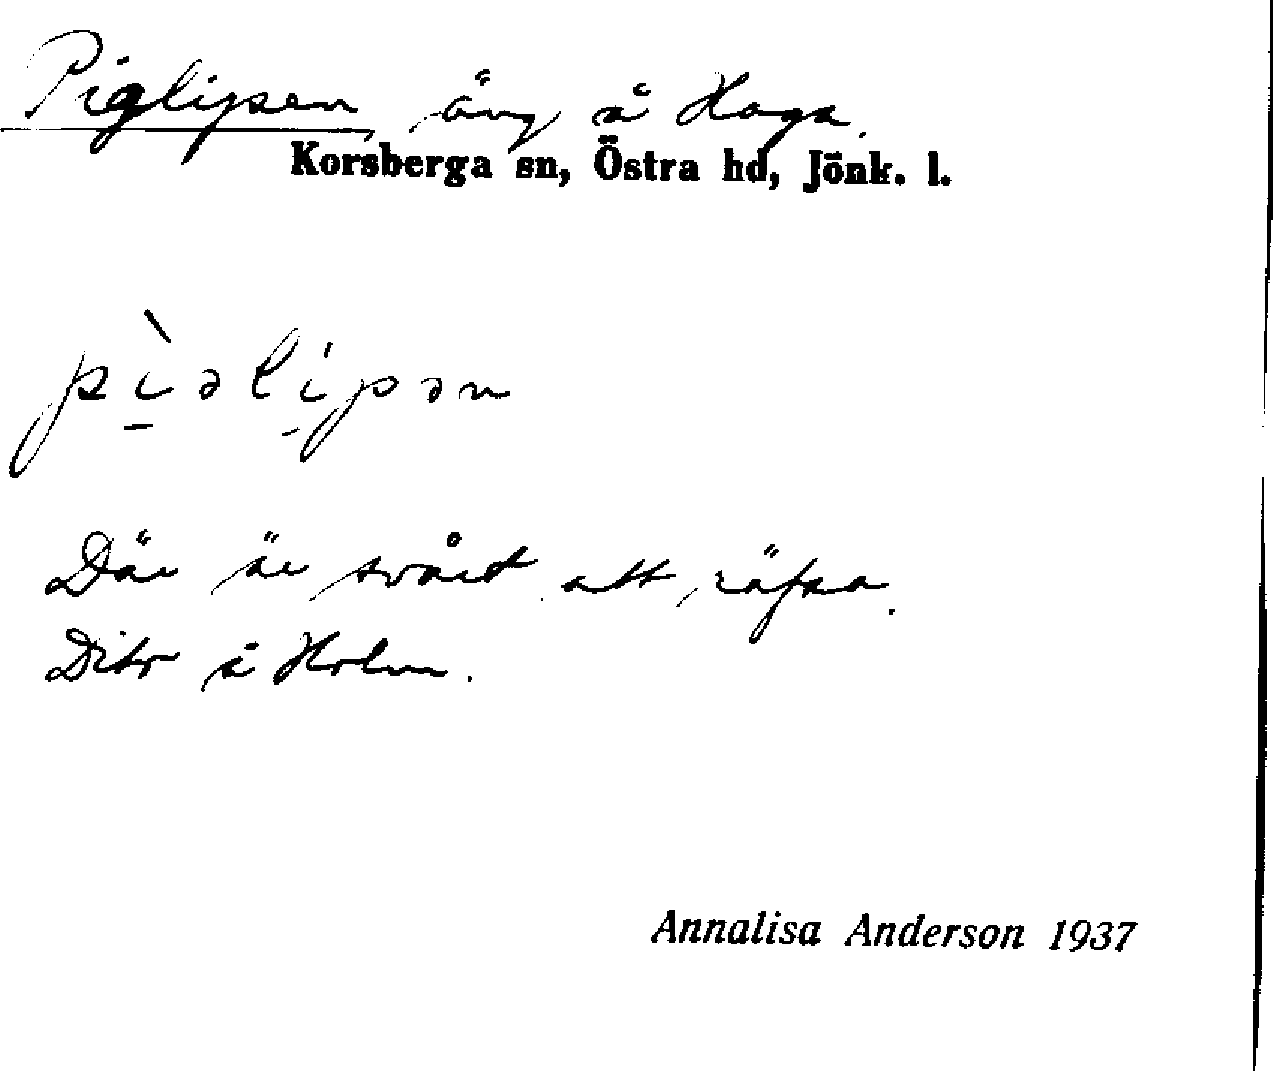 Piglipsen, äng å Haga.
Korsberga sn, Östra hd, Jönk. l.
pìəlipən
Där är svårt att räfsa.
Dito å Holm.
Annalisa Anderson 1937